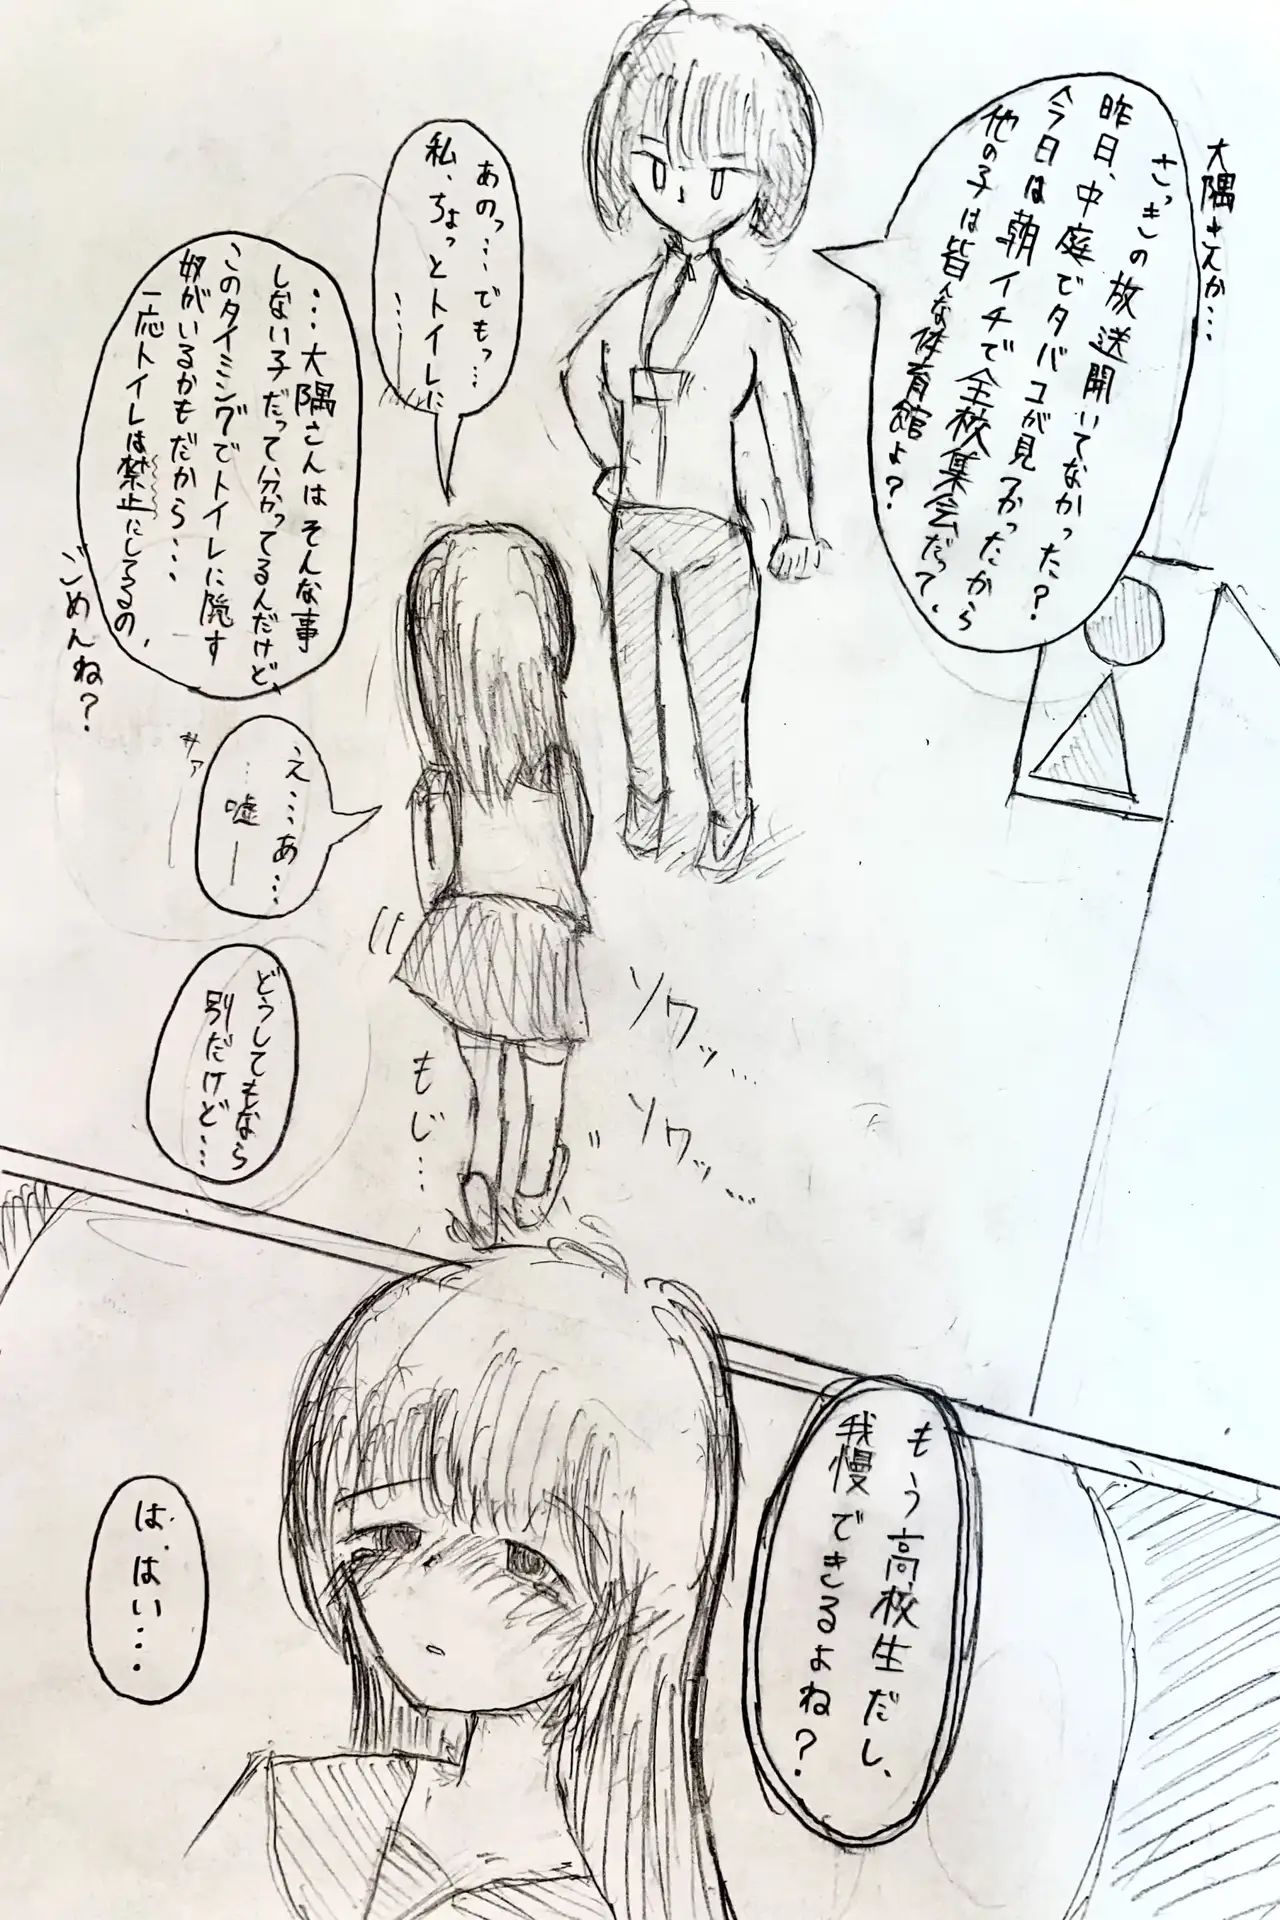 大隅さんか…
さっきの放送聞いてなかった？
昨日、中庭でタバコが見つかったから
今日は朝イチで全校集会だって、
他の子は皆んな体育館よ？
あのっ…でもっ…
私、ちょっとトイレに
……
…大隅さんはそんな事
しない子だって分かってるんだけど、
このタイミングでトイレに隠す
奴がいるかもだから…
一応トイレは禁止にしてるの、
ごめんね？
え…あ…
…嘘ー
サァ
どうしてもなら
別だけど…
ソワッ…
ソワッ…
もじ…
もう高校生だし、
我慢できるよね？
は、はい…